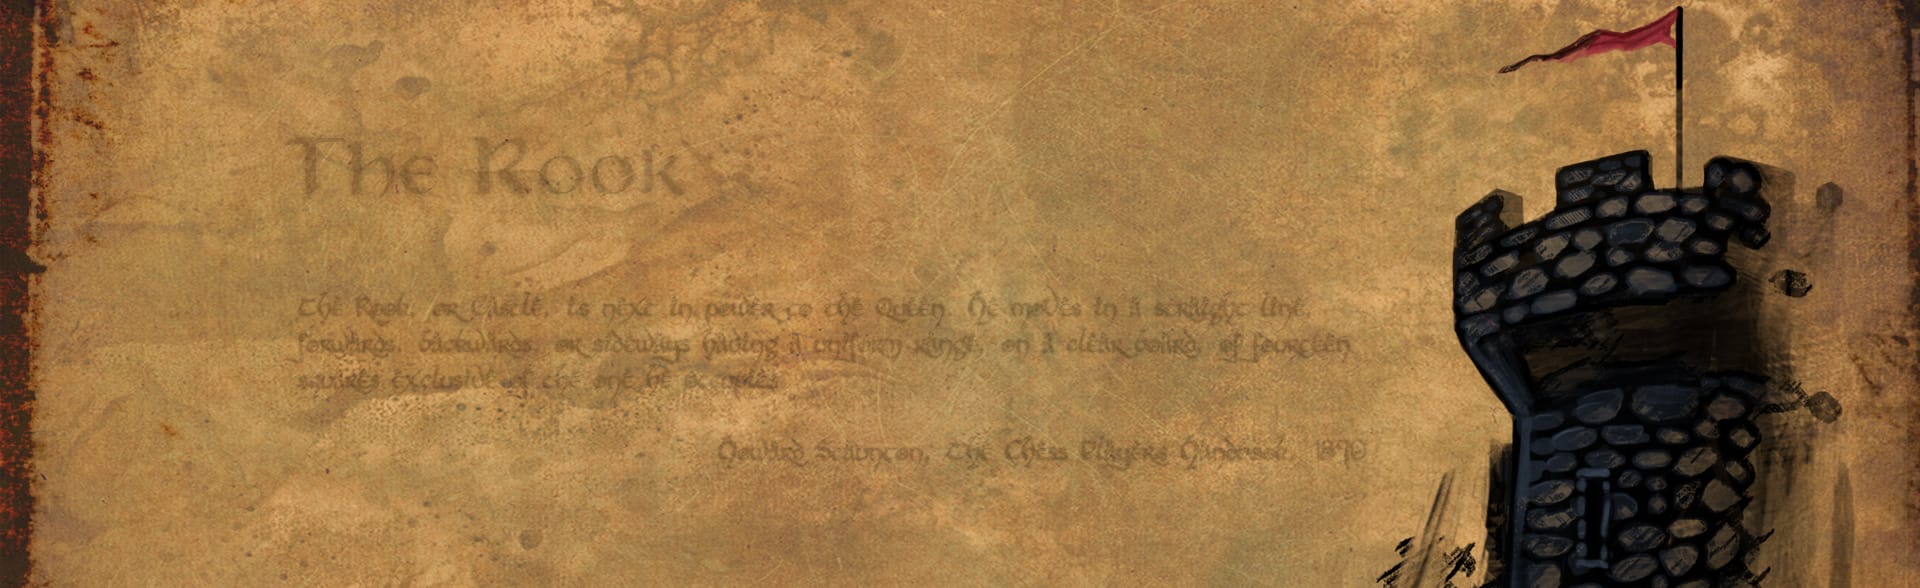 The Rook
The Rook, or Castle, is next in power to the Queen. He moves in a straight line,
forwards, backwards, or sideways having a uniform range, on a clear board, of fourteen
squares exclusive of the one he occupies
Howard Staunton, The Chess Players Handbook, 1870